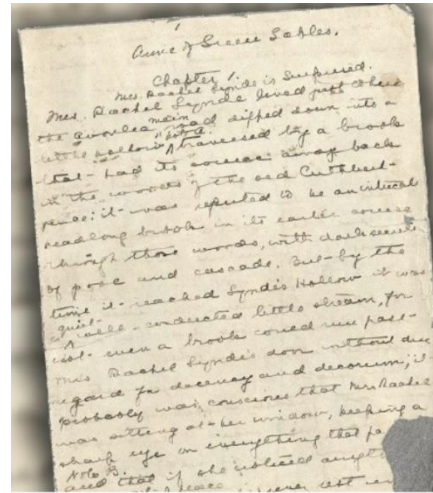 Anne of Green Gables.
Chapter 1.
Mrs. Rachel Lynde is Surprised.
Mrs. Rachel Lynde lived just where
main
the Avonlea road dipped down into a
little hollow
traversed by a brook
that had its source away back
in the woods of the old Cuthbert
place: it was reputed to be an intricate
headlong brook in its earlier course
through those woods, with dark secrets
of pool and cascade. But by the
time it reached Lynde's Hollow it was
quiet
a well-conducted little stream, for
not even a brook could run past
Mrs Rachel Lynde's door without due
regard for decency and decorum; it
probably was conscious that Mrs Rachel
was sitting at her window, keeping a
sharp eye on everything that
and that if she noticed